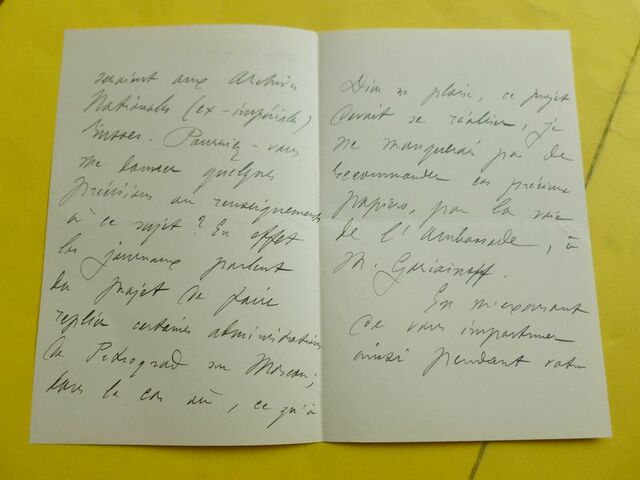 seraient aux Archives
Nationales (ex-impériales)
russes. Pourriez-vous
me donner quelques
précisions ou renseignements
à ce sujet? En effet
les journaux parlent
du projet de faire
replier certaines administrations
de Petrograd sur Moscou;
dans le cas où, ce qu'à
Dieu ne plaise, ce projet
devait se réaliser, je
ne manquerais pas de
recommander ces précieux
papiers, par la voie
de l'Ambassade, à
M. Goriainoff.
En m'excusant
de vous importuner
ainsi pendant votre